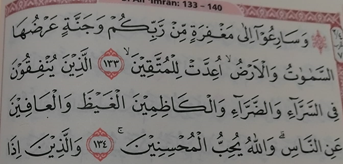 Ali 'Imran: 133 – 140
وَسَارِعُوٓا۟ إِلَىٰ مَغْفِرَةٍ مِّن رَّبِّكُمْ وَجَنَّةٍ عَرْضُهَا
السَّمٰوٰتُ وَالْأَرْضُ أُعِدَّتْ لِلْمُتَّقِينَ ١٣٣ الَّذِينَ يُنفِقُونَ
فِى السَّرَّآءِ وَالضَّرَّآءِ وَالْكَاظِمِينَ الْغَيْظَ وَالْعَافِينَ
عَنِ النَّاسِ ۗ وَاللَّهُ يُحِبُّ الْمُحْسِنِينَ ۚ ١٣٤ وَالَّذِينَ إِذَا